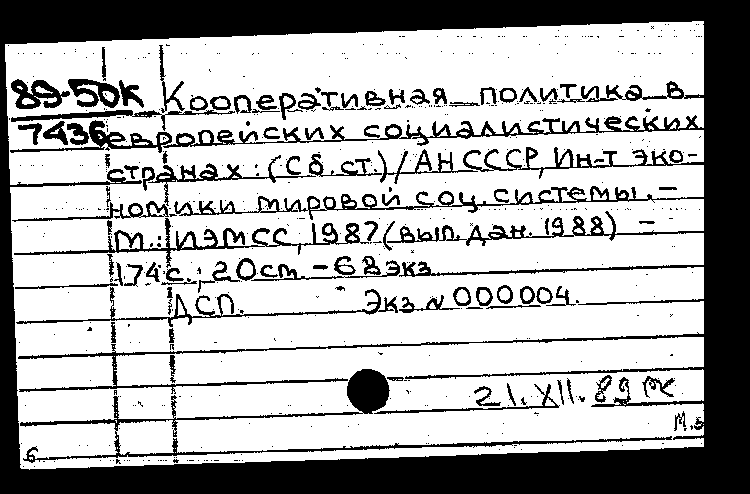 89-50К Кооперативная политика в
7436 европейских социалистических
странах: (Сб. ст.) / АН СССР, Ин-т эко-
номики мировой соц. системы. –
М.: ИЭМСС, 1987 (вып. дан. 1988) –
174 с.; 20 ст. – 68 экз
ДСП. Экз № 000004.
21. XII. 89
М.з
6